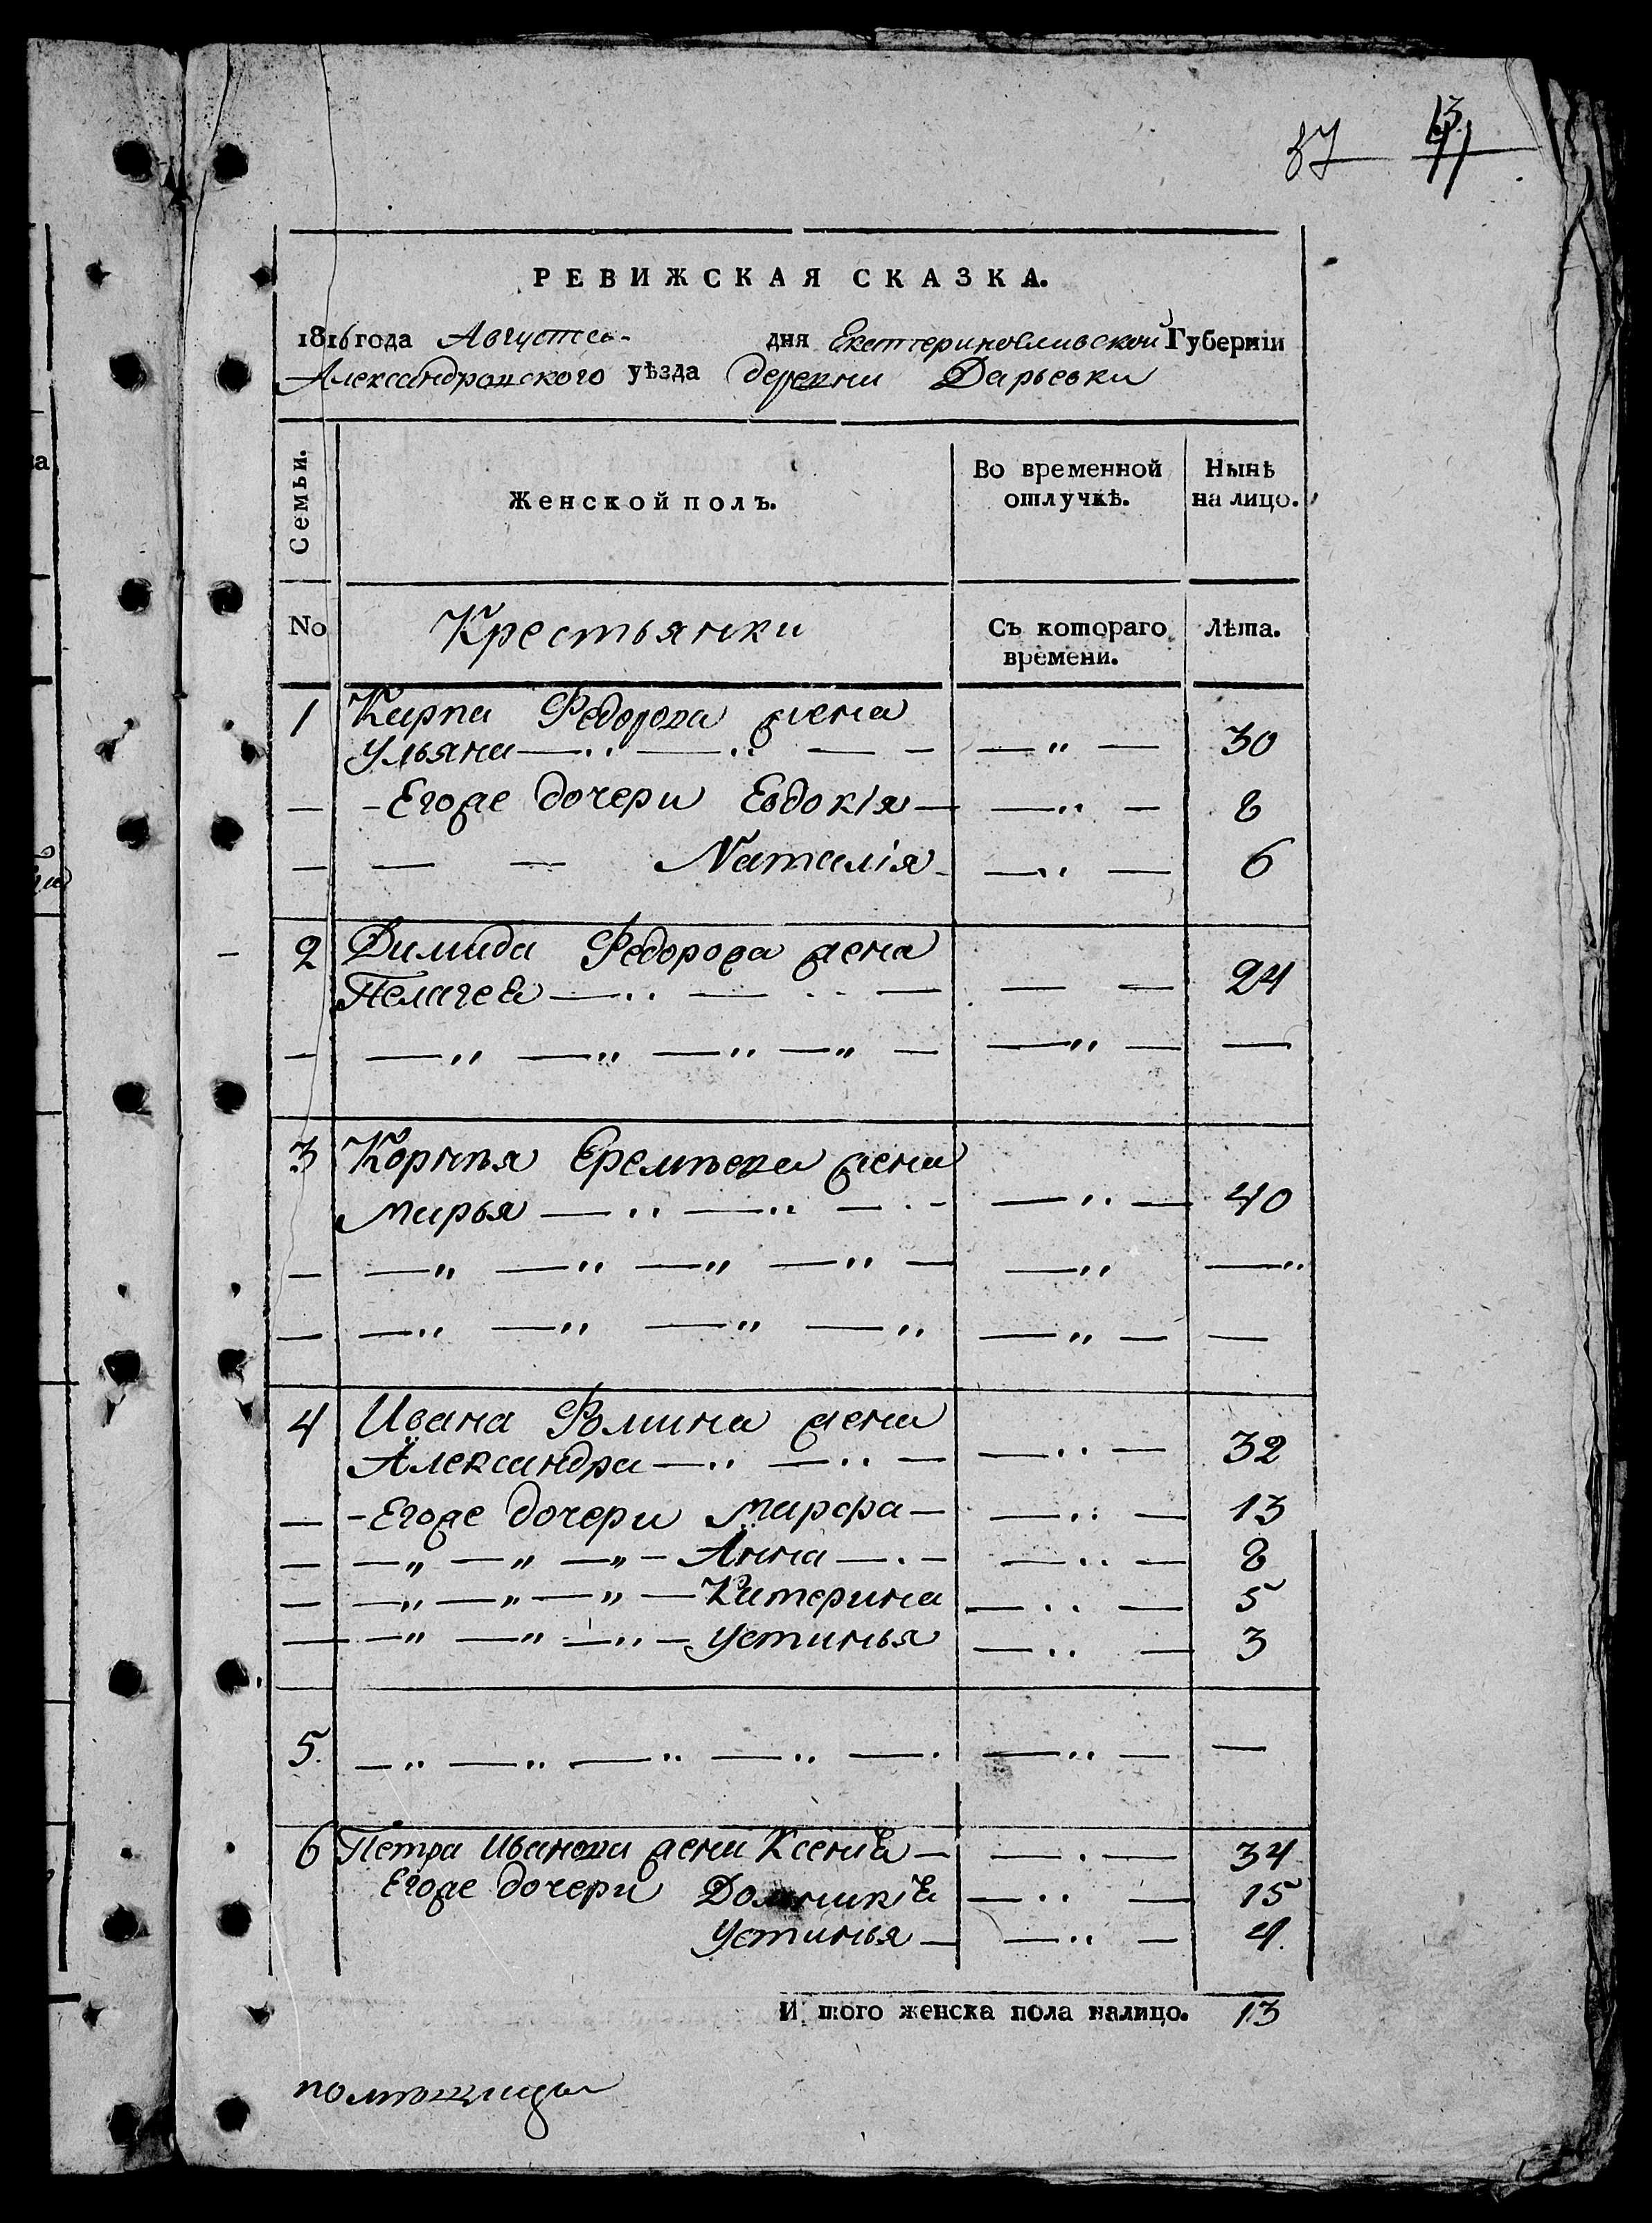 87 13
41
РЕВИЖСКАЯ СКАЗКА.
1816 года Августа дня Екатеринославской Губерніи
Александровского уѣзда деревни Дарьевки
Семьи.
Женской полъ.
Во временной отлучкѣ.
Нынѣ на лицо.
No
Крестьянки
Съ котораго времени.
Лѣта.
1 Карпа Федорова жена
Ульяна — 30
— Егоже дочери Евдокія — 8
— Наталія — 6
2 Димида Федорова жена
Пелагея — 24
— — —
3 Корнѣя Еремѣева жена
Марья — 40
— — —
— — —
4 Ивана Фомина жена
Александра — 32
— Егоже дочери Марфа — 13
— Анна — 8
— Катерина — 5
— Устинья — 3
5. — — —
6 Петра Иванова жена Ксенія — 34
Егоже дочери Домникія — 15
Устинья — 4.
И того женска пола налицо. 13
помѣщицы